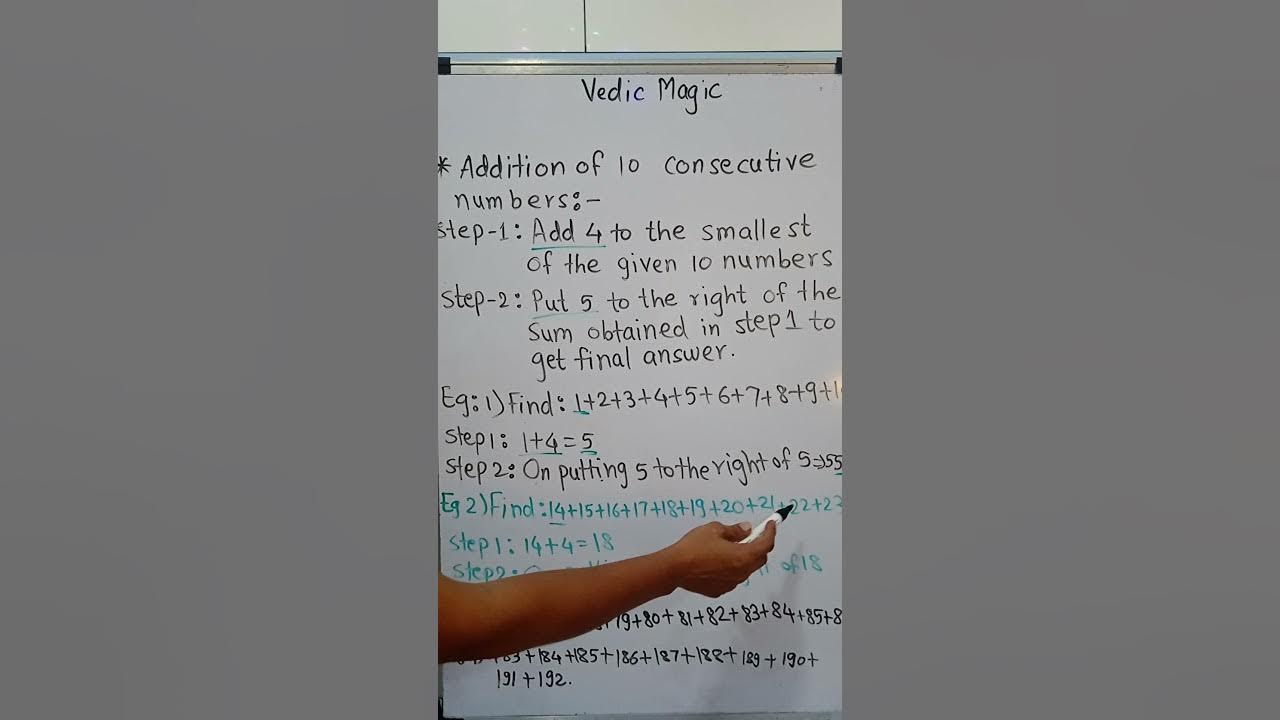 Vedic Magic
* Addition of 10 consecutive
numbers:-
Step-1: Add 4 to the smallest
of the given 10 numbers
Step-2: Put 5 to the right of the
Sum obtained in step 1 to
get final answer.
Eg: 1) Find: 1+2+3+4+5+6+7+8+9+1
Step 1: 1+4=5
Step 2: On putting 5 to the right of 5⇒55
Eg 2) Find: 14+15+16+17+18+19+20+21+22+23
Step 1: 14+4=18
Step 2: of 18
+80+81+82+83+84+85+8
+184+185+186+187+188+189+190+
191+192.